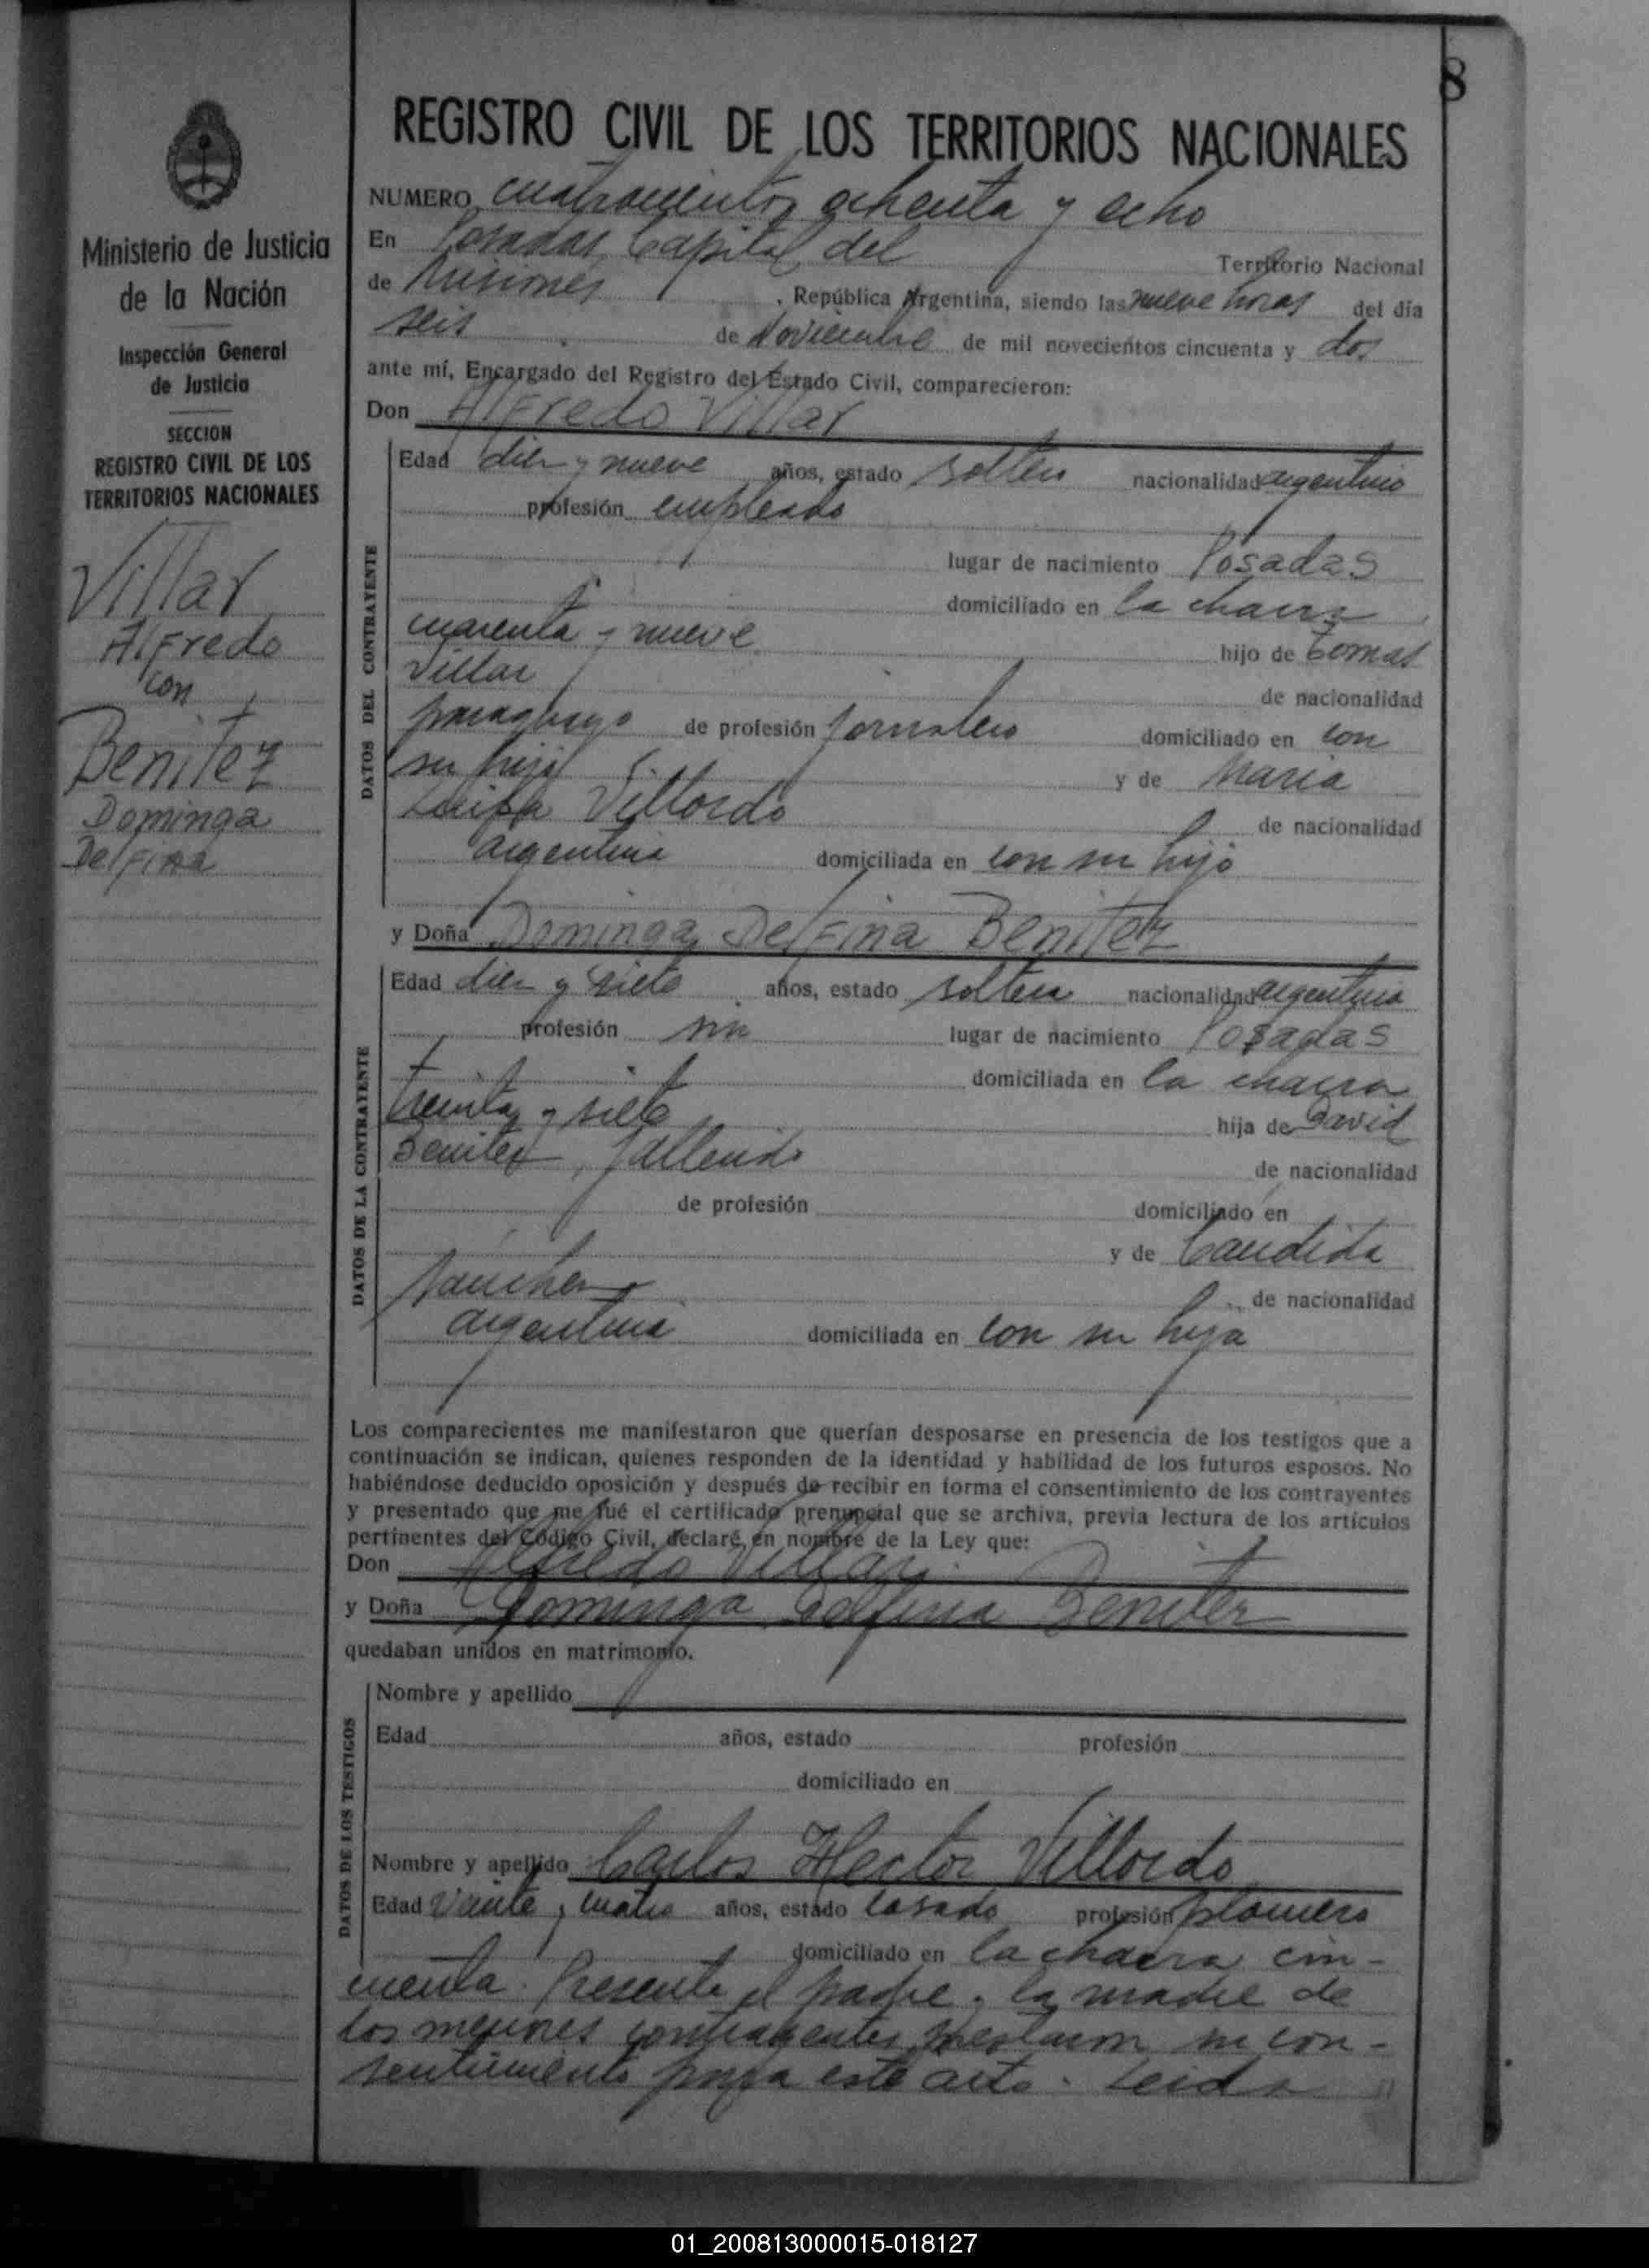 8
Ministerio de Justicia
de la Nación
Inspección General
de Justicia
SECCION
REGISTRO CIVIL DE LOS
TERRITORIOS NACIONALES
Villar
Alfredo
con
Benitez
Dominga
Delfina
REGISTRO CIVIL DE LOS TERRITORIOS NACIONALES
NUMERO cuatrocientos ochenta y ocho
En Posadas, Capital del Territorio Nacional
de Misiones, República Argentina, siendo las nueve horas del día
seis de Noviembre de mil novecientos cincuenta y dos
ante mí, Encargado del Registro del Estado Civil, comparecieron:
Don Alfredo Villar
DATOS DEL CONTRAYENTE
Edad diez y nueve años, estado soltero nacionalidad argentino
profesión empleado
lugar de nacimiento Posadas
domiciliado en la chacra
cuarenta y nueve hijo de Tomas
Villar de nacionalidad
paraguayo de profesión jornalero domiciliado en con
su hijo y de Maria
Luisa Villordo de nacionalidad
argentina domiciliada en con su hijo
y Doña Dominga Delfina Benitez
DATOS DE LA CONTRAYENTE
Edad diez y siete años, estado soltera nacionalidad argentina
profesión sin lugar de nacimiento Posadas
domiciliada en la chacra
treinta y siete hija de David
Benitez, fallecido de nacionalidad
de profesión domiciliado en
y de Candida
Sanchez de nacionalidad
argentina domiciliada en con su hija
Los comparecientes me manifestaron que querían desposarse en presencia de los testigos que a
continuación se indican, quienes responden de la identidad y habilidad de los futuros esposos. No
habiéndose deducido oposición y después de recibir en forma el consentimiento de los contrayentes
y presentado que me fué el certificado prenupcial que se archiva, previa lectura de los artículos
pertinentes del Código Civil, declaré en nombre de la Ley que:
Don Alfredo Villar
y Doña Dominga Delfina Benitez
quedaban unidos en matrimonio.
DATOS DE LOS TESTIGOS
Nombre y apellido
Edad años, estado profesión
domiciliado en
Nombre y apellido Carlos Hector Villordo
Edad veinte y cuatro años, estado casado profesión plomero
domiciliado en la chacra cin-
cuenta. Presente el padre y la madre de
los menores contrayentes prestaron su con-
sentimiento para este acto. Leida
01_200813000015-018127